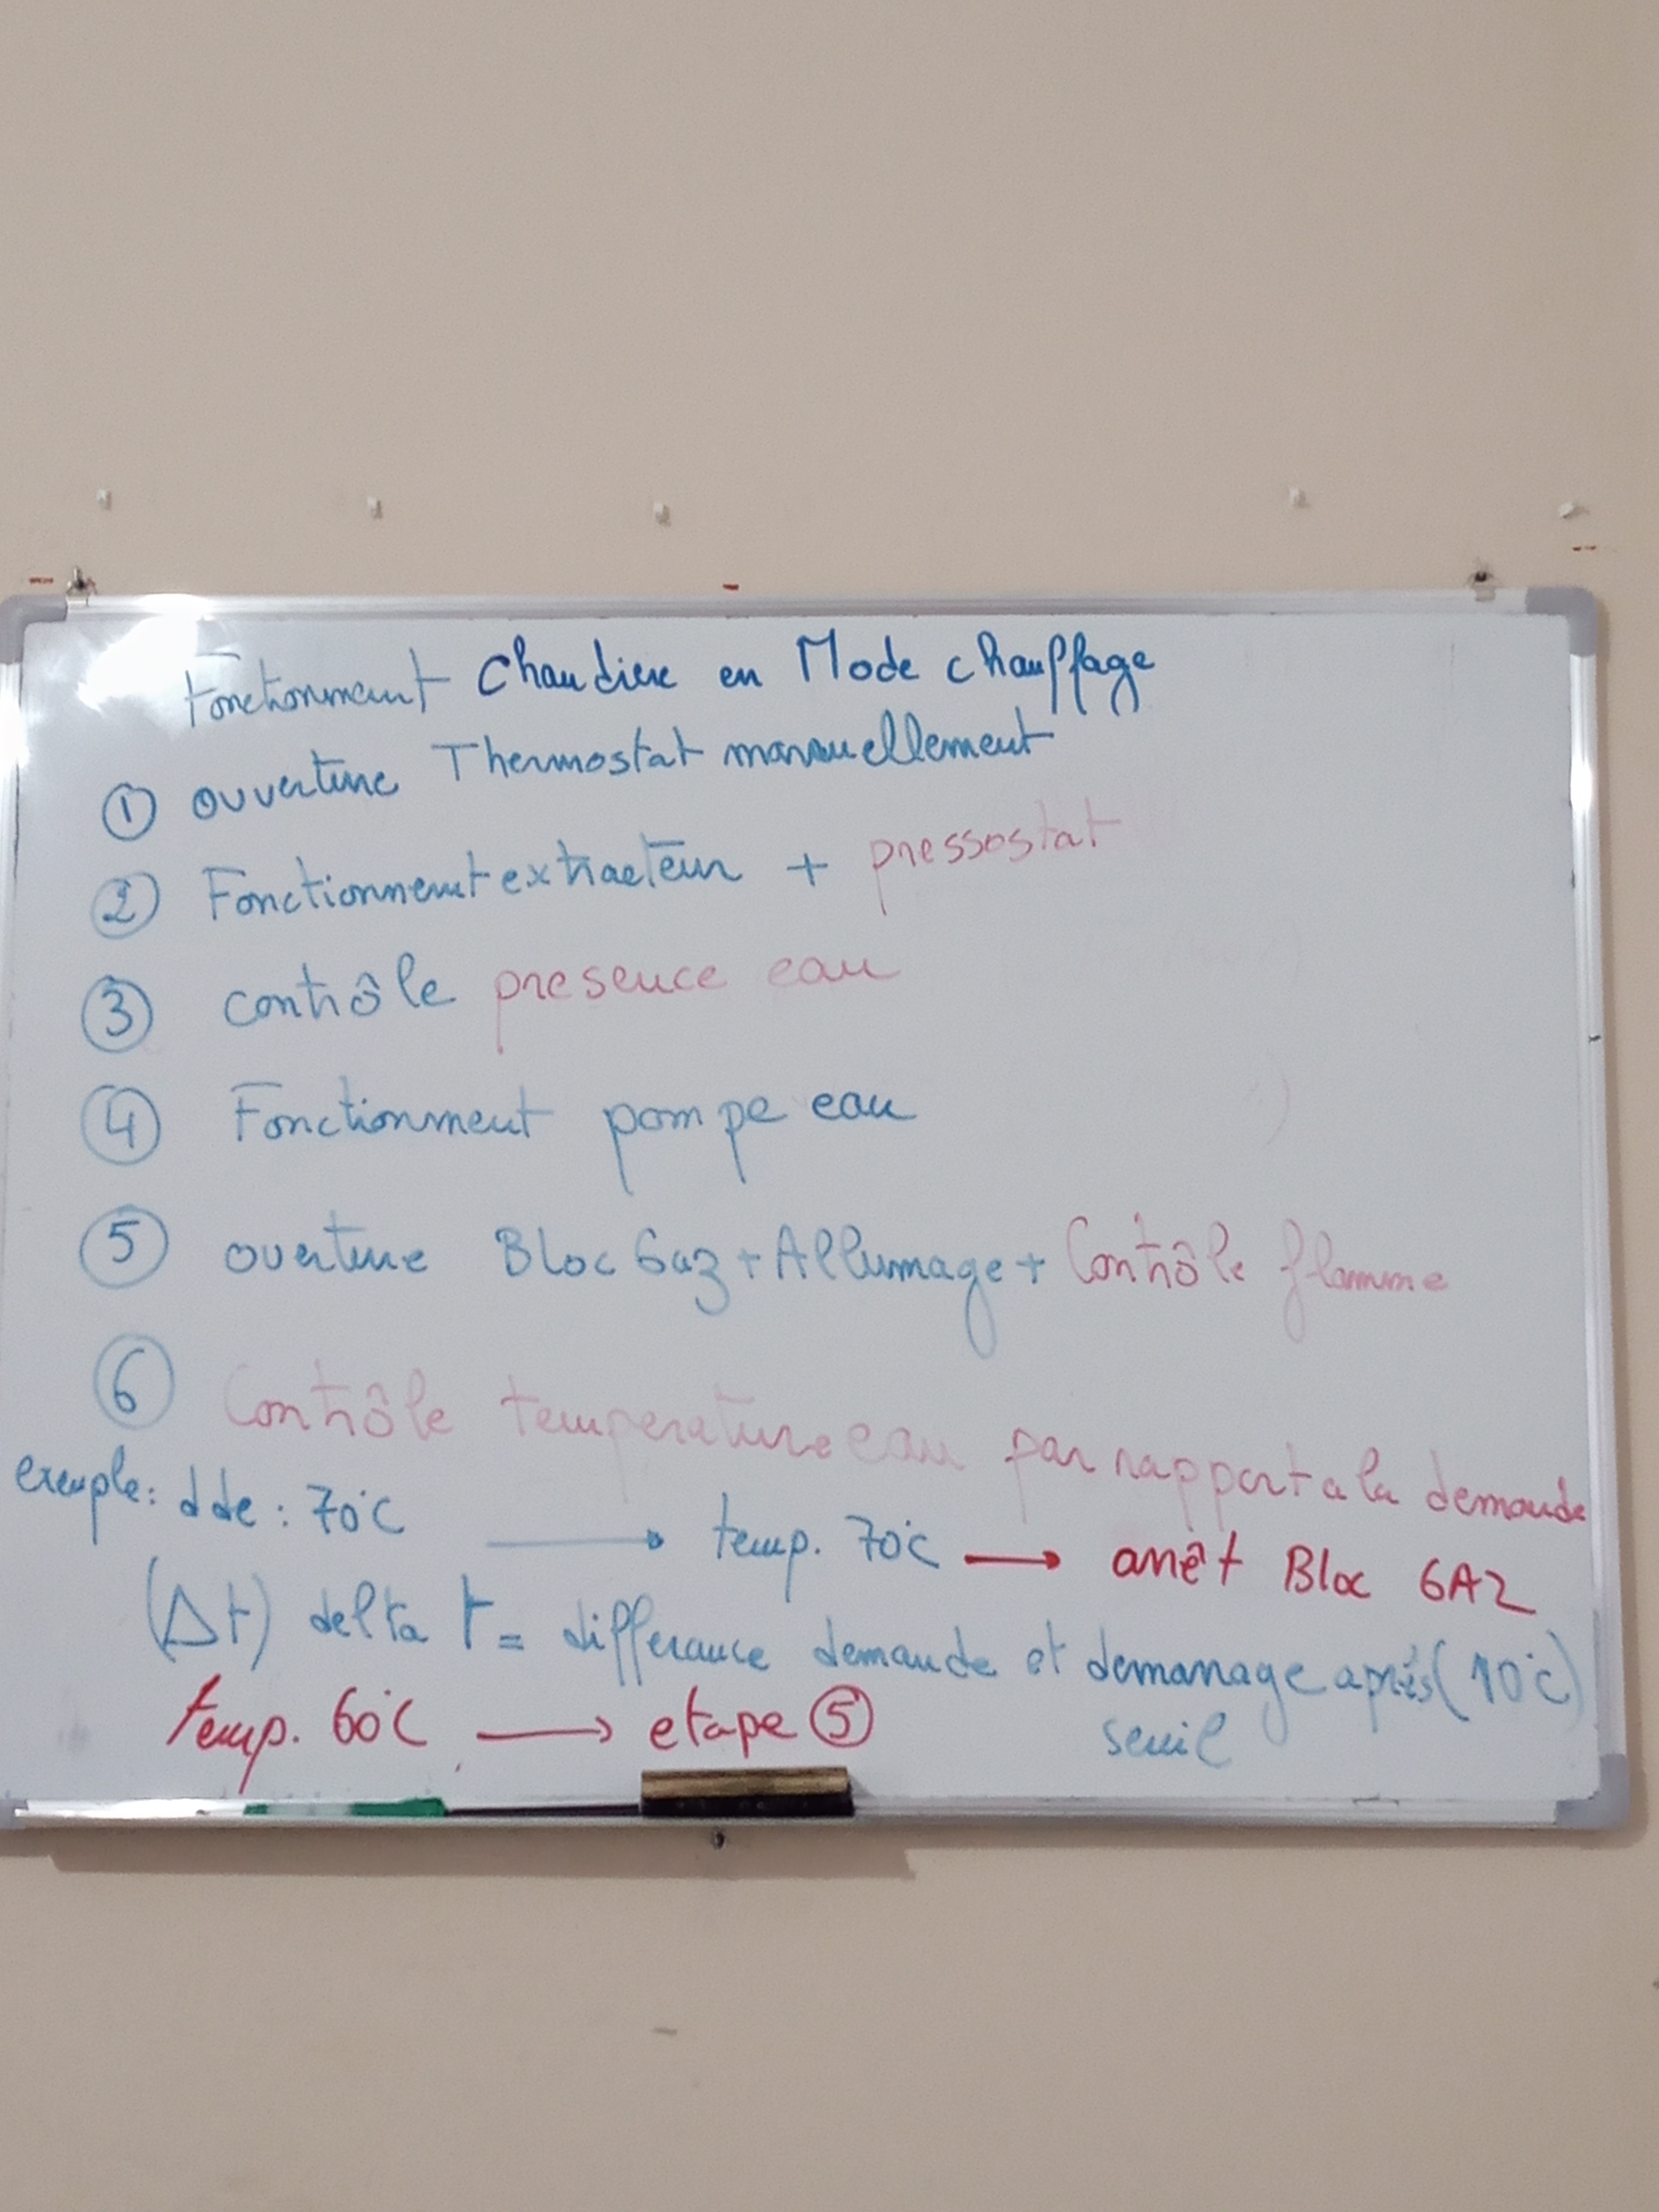 Fonctionnment Chaudiere en Mode chauffage
① ouverture Thermostat manuellement
② Fonctionnement extracteur + pressostat
③ contrôle presence eau
④ Fonctionnment pompe eau
⑤ ouverture Bloc Gaz + Allumage + Contrôle flamme
⑥ Contrôle temperature eau par rapport a la demande
exemple: dde : 70°C → temp. 70°C → arrêt Bloc GAZ
(Δt) delta t = differance demande et demarrage après (10°C)
seuil
temp. 60°C → etape ⑤